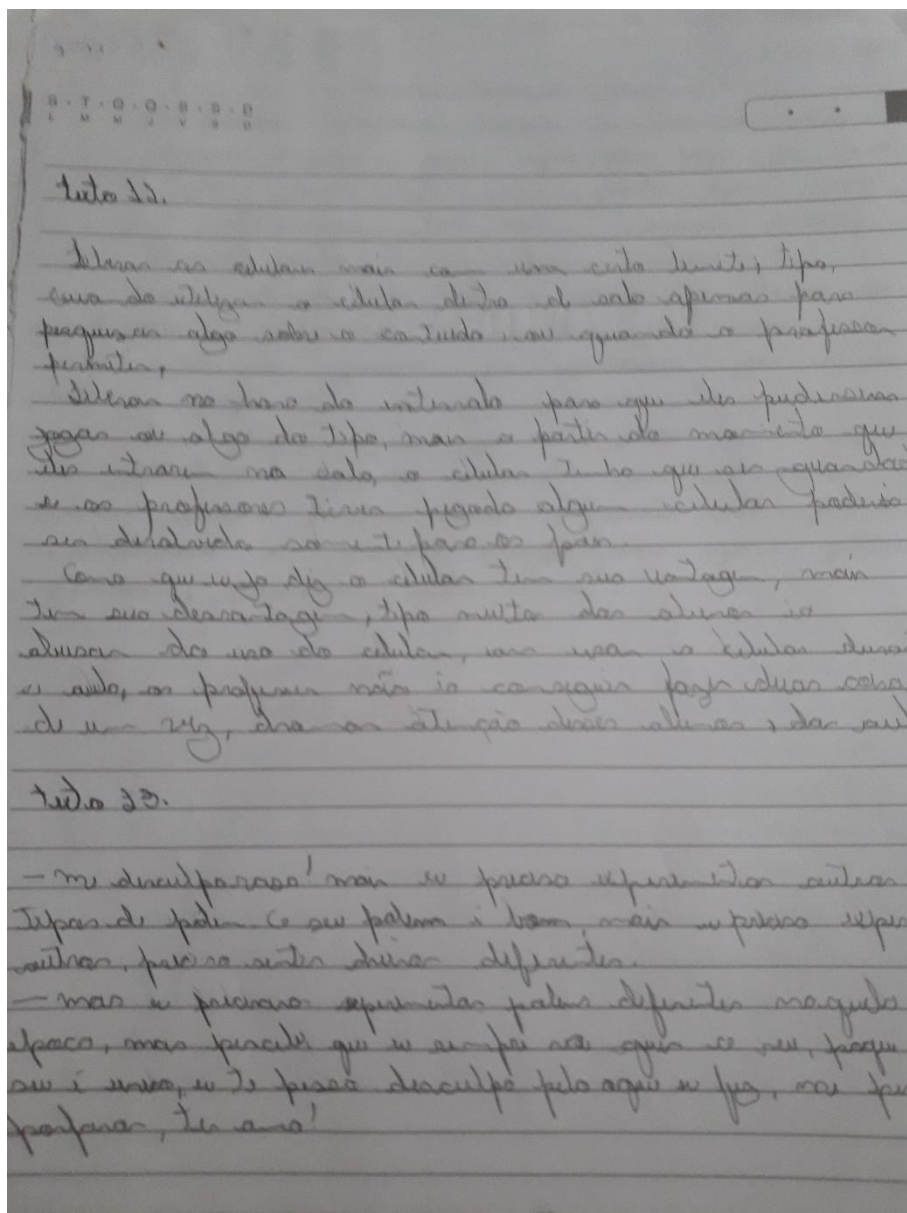 S T Q Q S S D
L M M J V S D
texto 22.
liberar os celulares mais com um certo limite, tipo,
utilizar o celular dentro d sala apenas para
pesquisar algo sobre o conteudo, ou quando o professor
permiter,
liberar no hora do intervalo para que eles pudessem
jogar ou algo do tipo, mais a partir do momento que
eles entrarem na sala, o celular tenha que ser guardado
e os professores tiver pegado algum celular poderia
ser devolvido somente para os pais.
Como que eu ja diz o celular tem sua vatagem, mais
tem sua desvatagem, tipo muito dos alunos ia
abusar do uso do celular, usar o celular
a aula, os professor não ia conseguir fazer duas coisa
de um vez, chamar atenção desses alunos, dar aul
texto 23.
— me desculpa mais eu preciso experimentar outros
Tipos de pães o seu pão é bom, mais eu preciso
outros, preciso sentir diferentes.
— mas eu experimentar pães diferentes naquela
epoca, mas percebi que eu sempre o seu, porque
seu é unico, eu te peço desculpa pelo aquio eu fiz, me
porfavor, te amo!